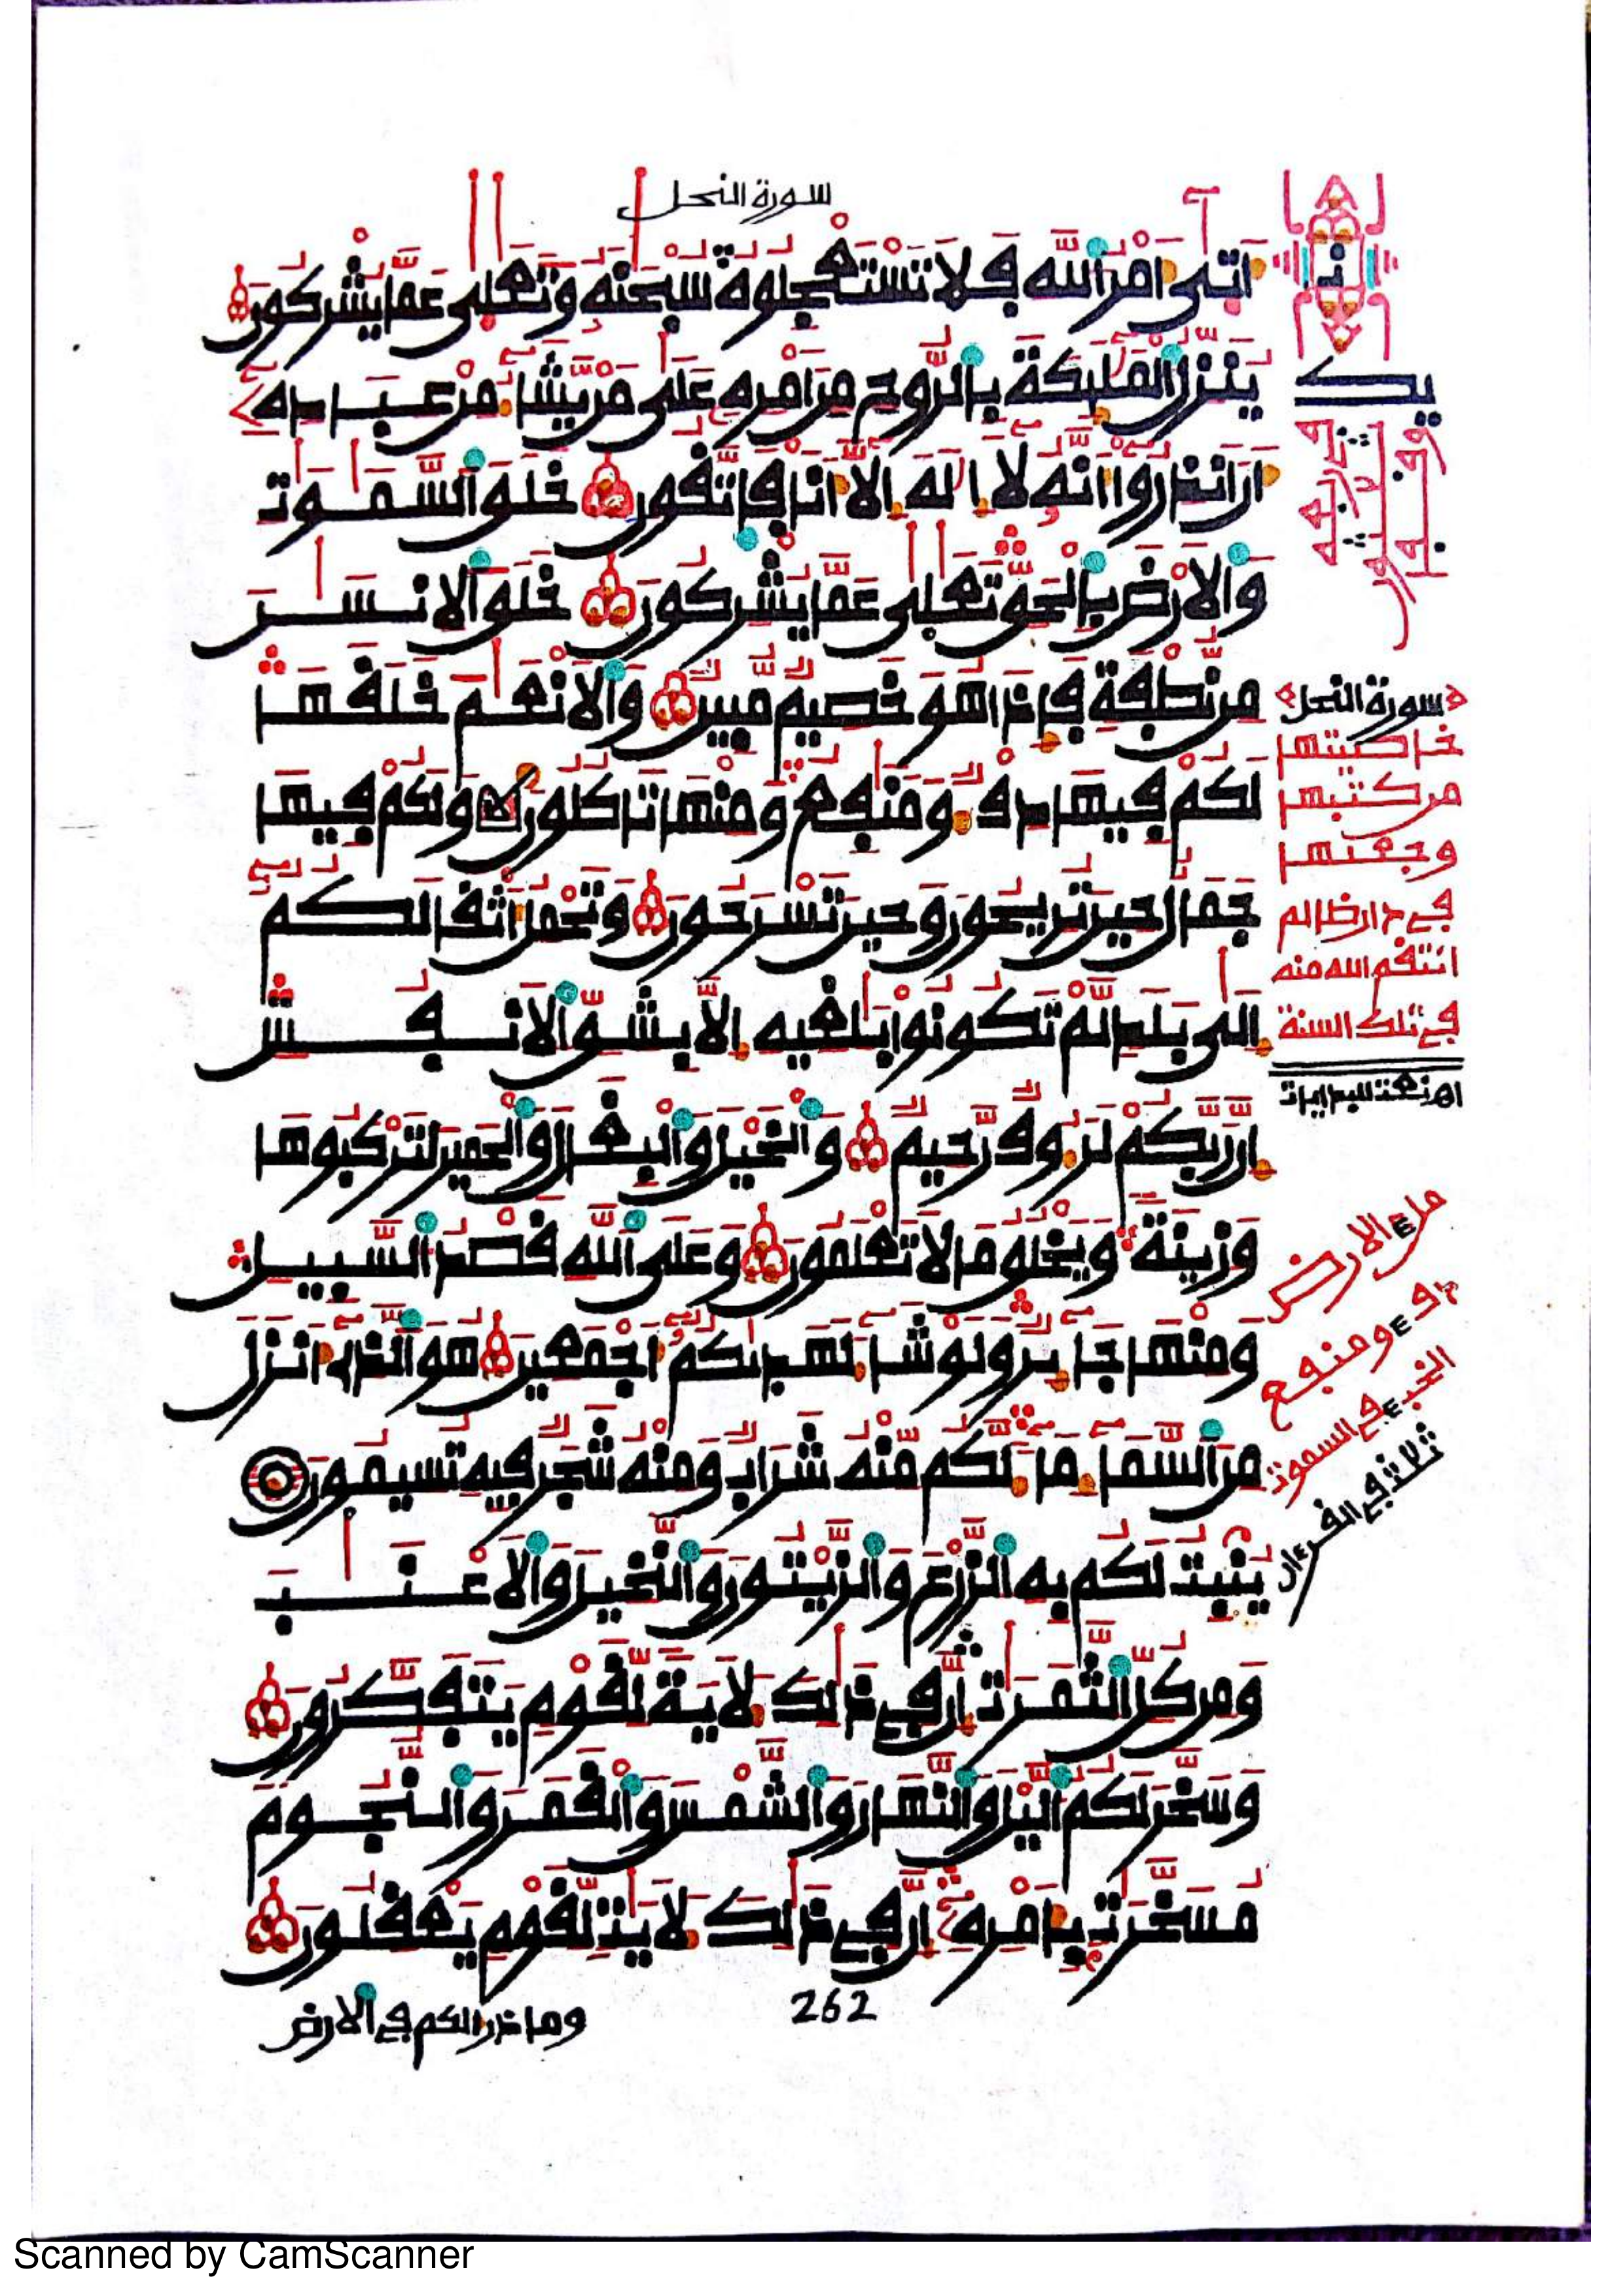 سورة النحل
اتى امر الله فلا تستعجلوه سبحنه وتعلى عما يشركون
ينزل الملئكة بالروح من امره على من يشا من عباده
ان انذروا انه لا اله الا انا فاتقون خلق السموت
والارض بالحق تعلى عما يشركون خلق الانسن
من نطفة فاذا هو خصيم مبين والانعم خلقها
لكم فيها دفء ومنفع ومنها تاكلون ولكم فيها
جمال حين تريحون وحين تسرحون وتحمل اثقالكم
الى بلد لم تكونوا بلغيه الا بشق الانفس
ان ربكم لرءوف رحيم والخيل والبغال والحمير لتركبوها
وزينة ويخلق ما لا تعلمون وعلى الله قصد السبيل
ومنها جائر ولو شا لهديكم اجمعين هو الذى انزل
من السما ما لكم منه شراب ومنه شجر فيه تسيمون
ينبت لكم به الزرع والزيتون والنخيل والاعنب
ومن كل الثمرت ان فى ذالك لاية لقوم يتفكرون
وسخر لكم اليل والنهار والشمس والقمر والنجوم
مسخرت بامره ان فى ذالك لايت لقوم يعقلون
262
وما ذرا لكم فى الارض
سورة النحل
خاصيتها
من كتبها
وجعلها
في دار ظالم
انتقم الله منه
في تلك السنة
ملء الارض
دفء ومنفع
الخبء في السموت
ثلاث في القرءان
Scanned by CamScanner